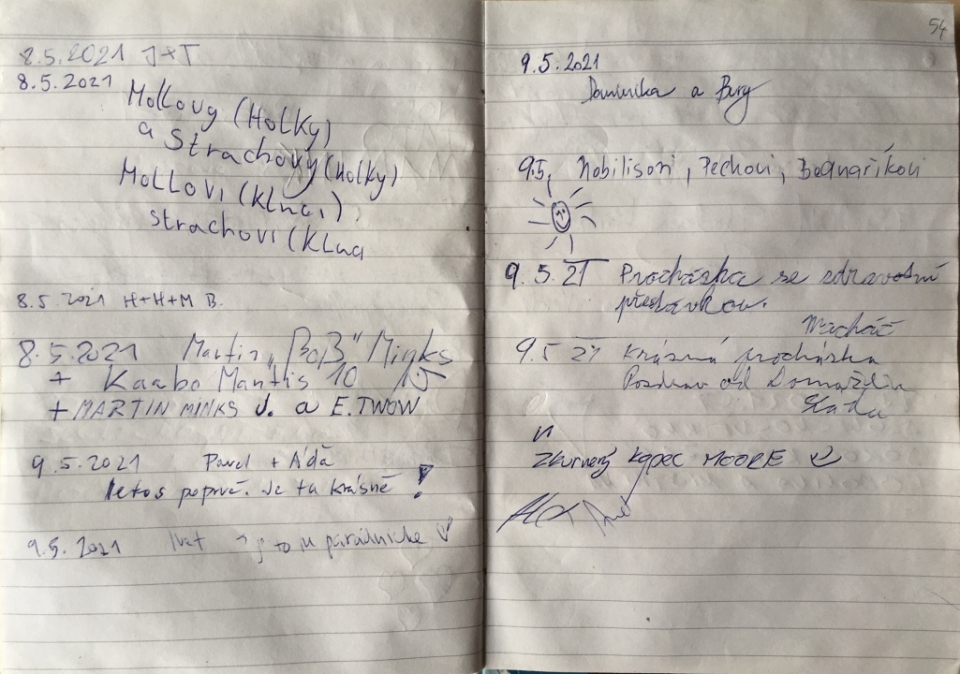 8.5.2021 J+T
8.5.2021 Mollovy (Holky)
a Strachovy (Holky)
Mollovi (kluci),
Strachovi (Klua
8.5.2021 H+H+M B.
8.5.2021 Martin „BOB" Minks
+ Kaabo Mantis 10
+ MARTIN MINKS J. a E.TWOW
9.5.2021 Pavel + Áďa
letos poprvé. Je tu krásně!
9.5.2021 to je parádniche
54
9.5.2021
Dominika a
9.5. Nobilisovi, Pechovi, Bednaříkovi
9.5.21 Procházka se zdravotní
přestávkou.
Macháč
9.5 21 Krásná procházka
Pozdrav od Domažlic
Láďa
Zkurvený kopec